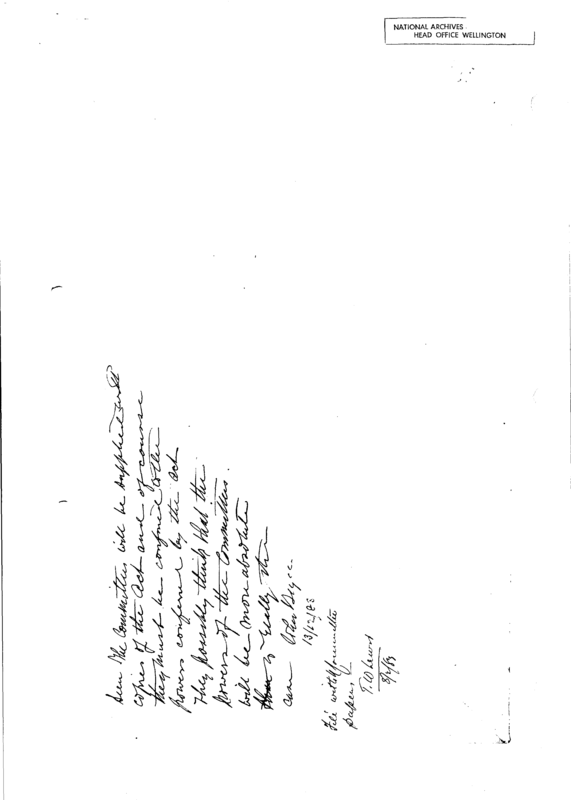 NATIONAL ARCHIVES
HEAD OFFICE WELLINGTON
Seen The Committees will be supplied with
copies of the Act and of course
they must be confined to the
powers conferred by the act
They possibly think that the
powers of the Committees
will be more absolute
than is really the
case John Bryce
File with
papers
T. W. Lewis